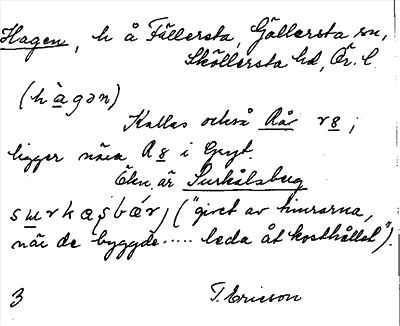 Hagen, h å Fällersta, Gällersta sn,
Sköllersta hd, Ör. l.
(hàgən)
Kallas också Rår r8;
ligger nära R8 i Gryt.
Ökn. är Surkålsberg
(“givet av timrarna,
när de byggde..... leda åt kosthållet”).
3 T. Ericson